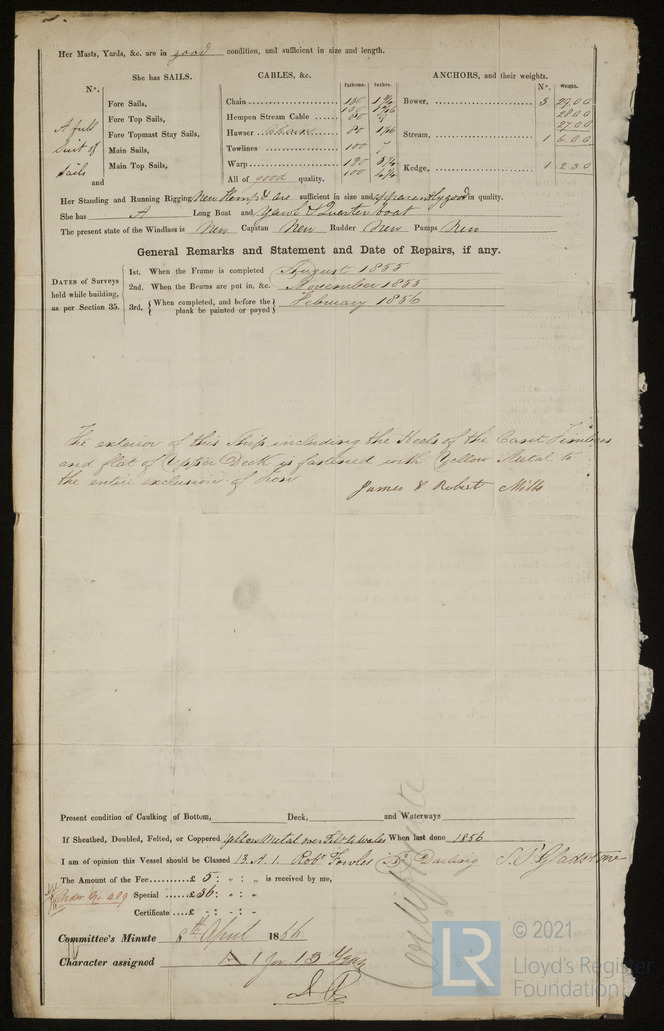 Her Masts, Yards, &c. are in good condition, and sufficient in size and length.
She has SAILS.
CABLES, &c.
ANCHORS, and their weights.
N°.
Fathoms.
Inches.
N°.
Weight.
A full Suit of Sails and
Fore Sails,
Fore Top Sails,
Fore Topmast Stay Sails,
Main Sails,
Main Top Sails,
Chain
Hempen Stream Cable 80
Hawser Chain 80
Towlines 100 7
Warp 120
100
All of good quality.
Bower, 3 29.0.0
28.0.0
27.0.0
Stream, 1 6.0.0
Kedge, 1 2.3.0
Her Standing and Running Rigging New Hemp & are sufficient in size and apparently good in quality.
She has A Long Boat and Yawl & Quarter boat
The present state of the Windlass is New Capstan New Rudder New Pumps New
General Remarks and Statement and Date of Repairs, if any.
DATES of Surveys held while building, as per Section 35.
1st. When the Frame is completed August 1855
2nd. When the Beams are put in, &c. November 1855
3rd. { When completed, and before the plank be painted or payed } February 1856
The exterior of this Ship including the Heels of the Cant Timbers
and flat of Upper Deck is fastened with Yellow Metal to
the entire exclusion of Iron
James & Robert Mills
Present condition of Caulking of Bottom, Deck, and Waterways
If Sheathed, Doubled, Felted, or Coppered Yellow Metal over Felt to Wales When last done 1856
I am of opinion this Vessel should be Classed 13 A. 1. Robt Fowles Darling Gladstone
The Amount of the Fee £ 5 : „ : „ is received by me,
Special £ 36 : „ : „
Certificate £ - : - : „
Committee's Minute 8th April 1856
Character assigned A 1 for 13 Years
Certificate
LR
© 2021
Lloyd's Register
Foundation